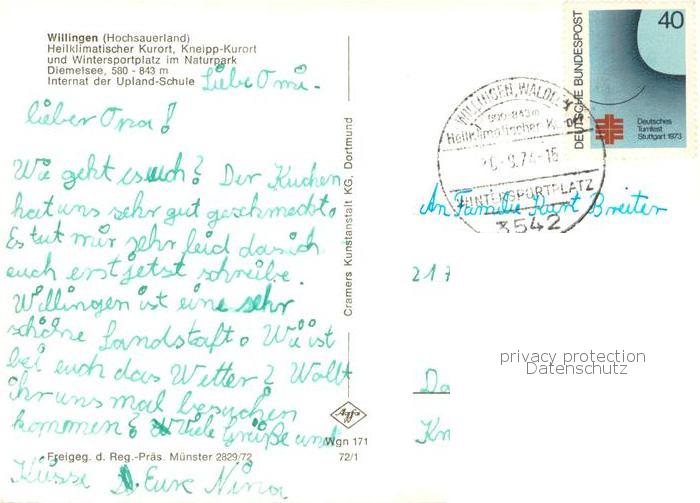 Willingen (Hochsauerland)
Heilklimatischer Kurort, Kneipp-Kurort
und Wintersportplatz im Naturpark
Diemelsee, 580 - 843 m
Internat der Upland-Schule
Liebe Omi.
lieber Opa!
Wie geht es euch? Der Kuchen
hat uns sehr gut geschmeckt.
Es tut mir sehr leid das ich
euch erst jetst schreibe.
Willingen ist eine sehr
schöne Landstaft. Wie ist
bei euch das Wetter? Wollt
ihr uns mal besuchen
kommen? Viele Grüße und
Wgn 171
Freigeg. d. Reg.-Präs. Münster 2829/72
72/1
Küsse Eure Nina
Cramers Kunstanstalt KG, Dortmund
Agfa
WILLINGEN, WALDECK
Heilklimatischer
WINTERSPORTPLATZ
3542
DEUTSCHE BUNDESPOST
40
Deutsches
Turnfest
Stuttgart 1973
An Familie Kurt Breiter
217
privacy protection
Datenschutz
Da
Kn